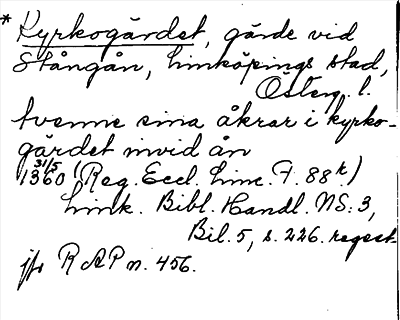 * Kyrkogärdet, gärde vid
Stångån, Linköpings stad,
Österg. l.
tvenne sina åkrar i kyrko-
gärdet invid ån
31/5 1360 (Reg. Eccl. Linc. F. 88r.)
Link. Bibl. Handl. NS: 3,
Bil. 5, s. 226. regest.
jfr RAP n. 456.